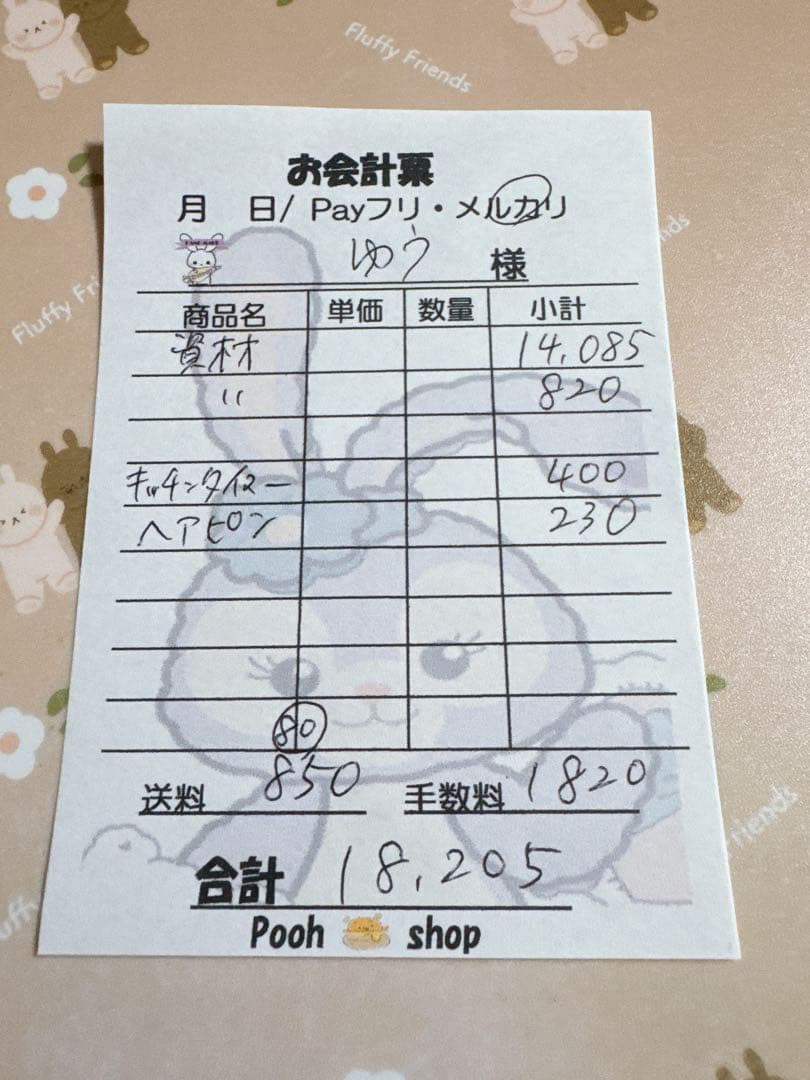 Fluffy Friends
お会計票
月 日/ Payフリ・メルカリ
ゆう 様
商品名 単価 数量 小計
資材 14,085
〃 820
キッチンタイマー 400
ヘアピン 230
80
送料 850 手数料 1820
合計 18,205
Pooh shop
Fluffy Frie
riends
y Friends